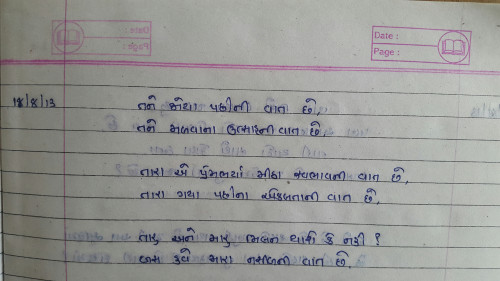 Date :
Page :
18/8/13
તને જોયા પછીની વાત છે,
તને મળવાના ઉત્સાહની વાત છે,
તારા એ પ્રેમભર્યા મીઠા સ્વભાવની વાત છે,
તારા ગયા પછીના એકલતાની વાત છે,
તારૂ અને મારૂ મિલન થાશે કે નહી ?
બસ હવે મારા નસીબની વાત છે.